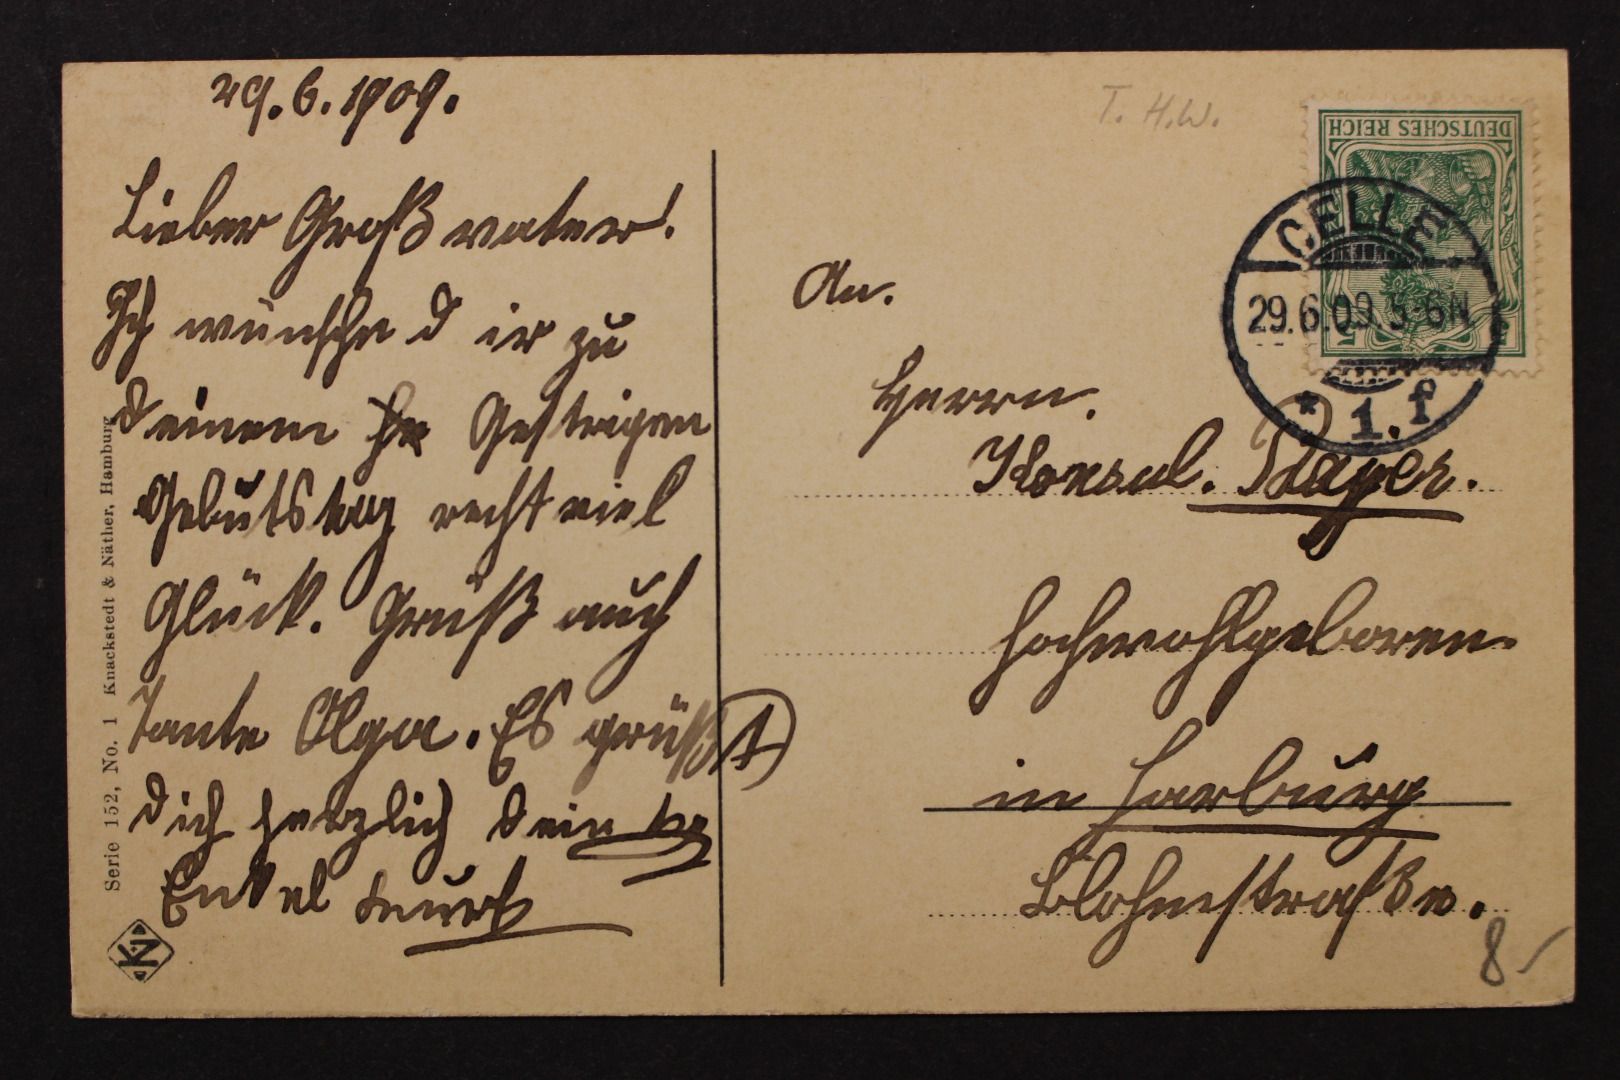 29.6.1909.
Lieber Großvater!
Ich wünsche dir zu
deinem Gestrigen
Gebutstag recht viel
Glück. Grüß auch
Tante Olga. Es grüßt
dich herzlich dein
Enkel Kurt
Serie 152, No. 1 Knackstedt & Näther, Hamburg
KN
T. H.W.
DEUTSCHES REICH
5 5
CELLE
29.6.09.5-6N
* 1. f
An.
Herrn.
Konsul.
Hochwohlgeboren.
in Harburg
Blohmstraße.
8